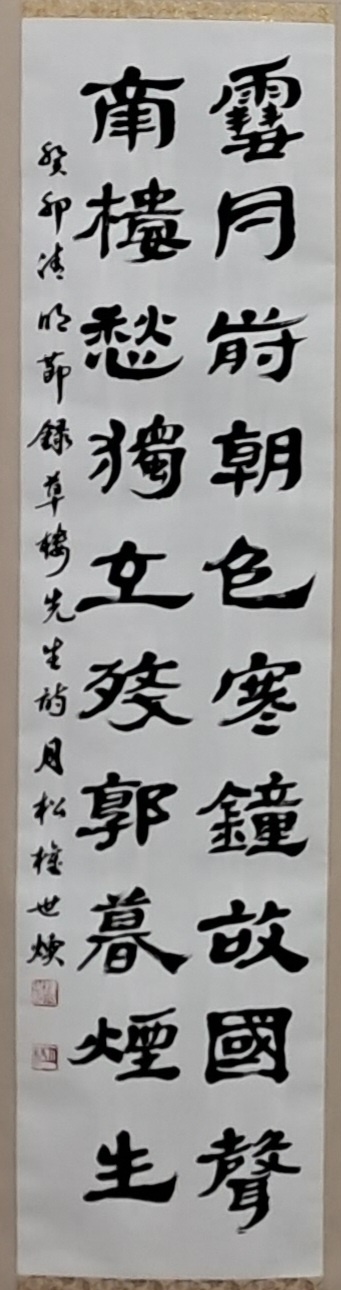 雪月前朝色寒鐘故國聲
南樓愁獨立殘郭暮煙生
癸卯清明節錄草樓先生詩月松權世煥